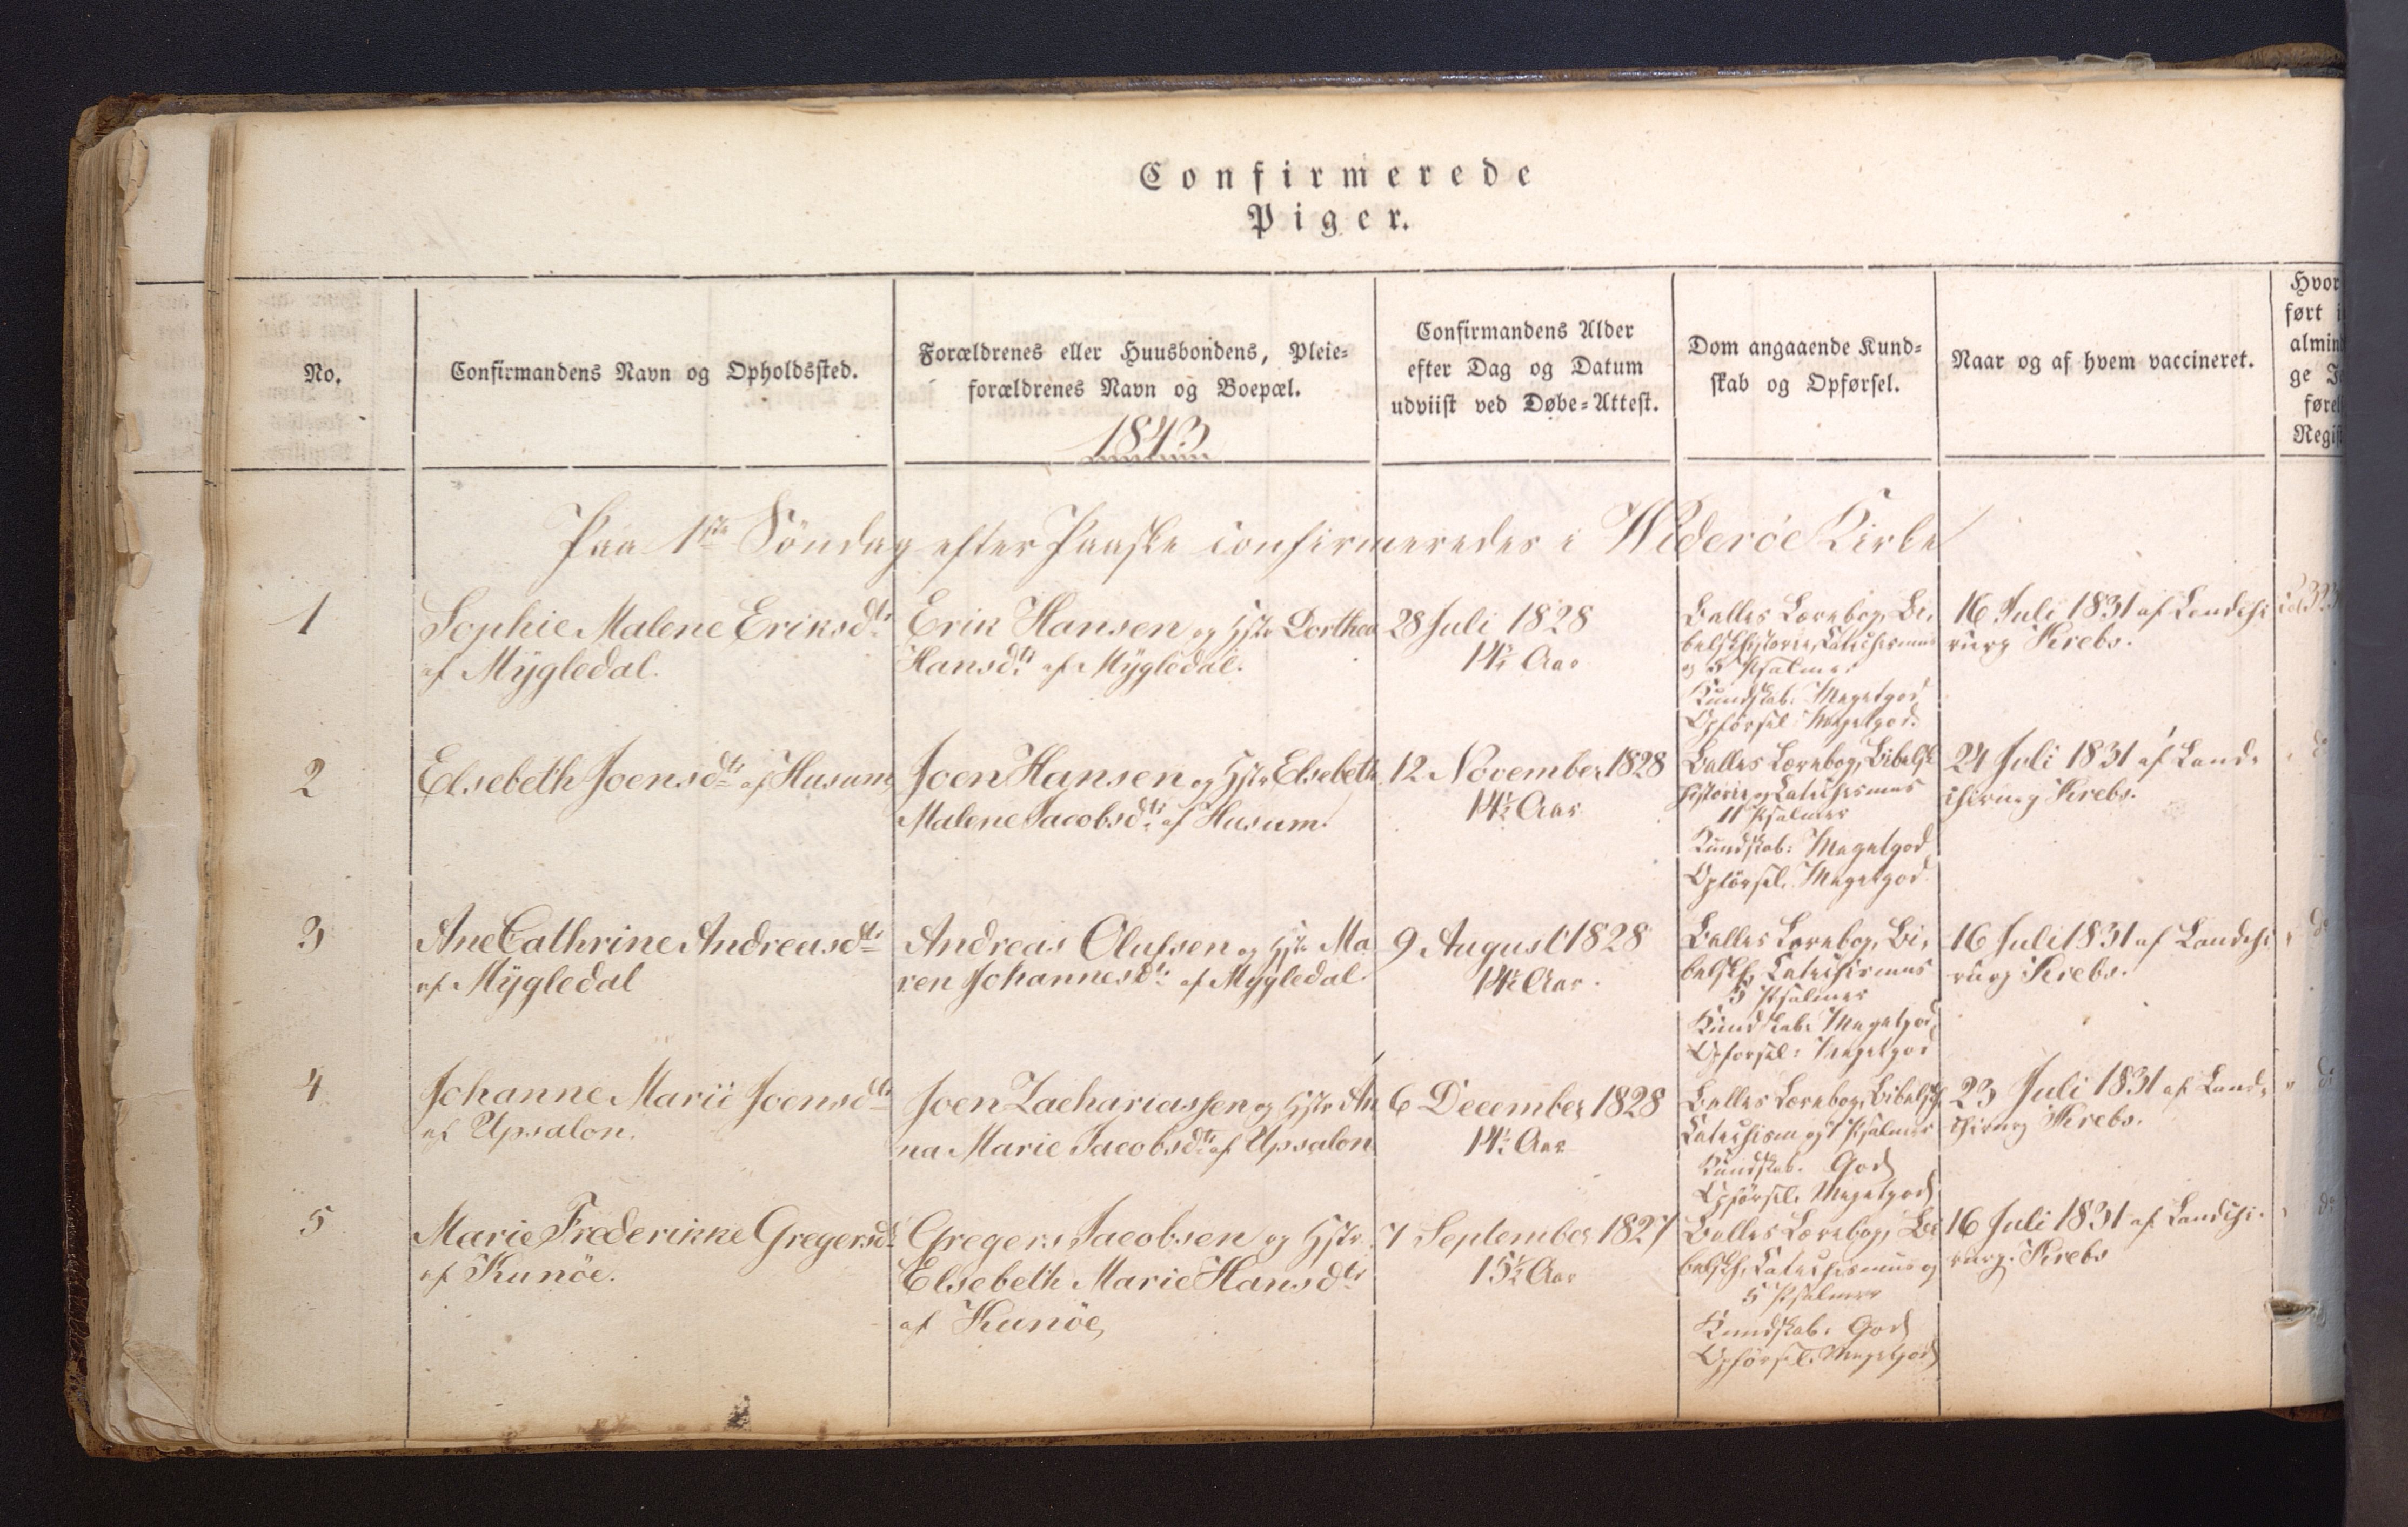 Confirmerede
Piger.
No.
Confirmandens Navn og Opholdssted.
Forældrenes eller Huusbondens, Pleie-
forældrenes Navn og Boepæl.
1843
Confirmandens Alder
efter Dag og Datum
udviist ved Døbe-Attest.
Dom angaaende Kund-
skab og Opførsel.
Naar og af hvem vaccineret.
Hvor
ført i
almind
ge
føre
Regist
Paa 1ste Söndag efter Paaske confirmeredes i Wideröe Kirke
1
Sophie Malene Eriksdtr
af Mÿgledal.
Erik Hansen og Hstr Dorthea
Hansdtr af Mÿgledal.
28 Juli 1828
14½ Aar
Balles Lærebog, Bi-
belskhistorie, Catechismus
og 5 Psalmer
Kundskab: Megetgod
Opförsel Megetgod.
16 Juli 1831 af Landchi
rurg Krebs.
2
Elsebeth Joensdtr af Husum
Joen Hansen og Hstr Elsebeth
Malene Jacobsdtr af Husum.
12 November 1828
14½ Aar
Balles Lærebog, Bibelsk
historie og Catechismus
11 Psalmer
Kundskab: Megetgod
Opförsel. Megetgod.
24 Juli 1831 af Land-
chirurg Krebs.
3
Ane Cathrine Andreasdtr
af Mÿgledal
Andreas Olufsen og Hstr Ma
ren Johannesdtr af Mygledal.
9 August 1828
14½ Aar.
Balles Lærebog, Bi-
belskh, Catechismus
5 Psalmer
Kundskab: Megetgod
Opförsel: Megetgod
16 Juli 1831 af Landchi
rurg Krebs.
4
Johanne Marie Joensdtr
af Upsalon.
Joen Zachariassen og Hstr An
na Marie Jacobsdtr af Upsalon
6 December 1828
14½ Aar
Balles Lærebog, Bibelskh
Catechism og 7 Psalmer
Kundskab. God
Opförsel. Megetgod
23 Juli 1831 af Land-
chirurg Krebs.
5
Marie Frederikke Gregersdtr
af Kunöe.
Gregers Jacobsen og Hstr
Elsebeth Marie Hansdtr
af Kunöe
7 September 1827
15½ Aar
Balles Lærebog, Bi
belskh, Catechismus og
5 Psalmer
Kundskab. God
Opförsel. Megetgod
16 Juli 1831 af Landchi-
rurg. Krebs